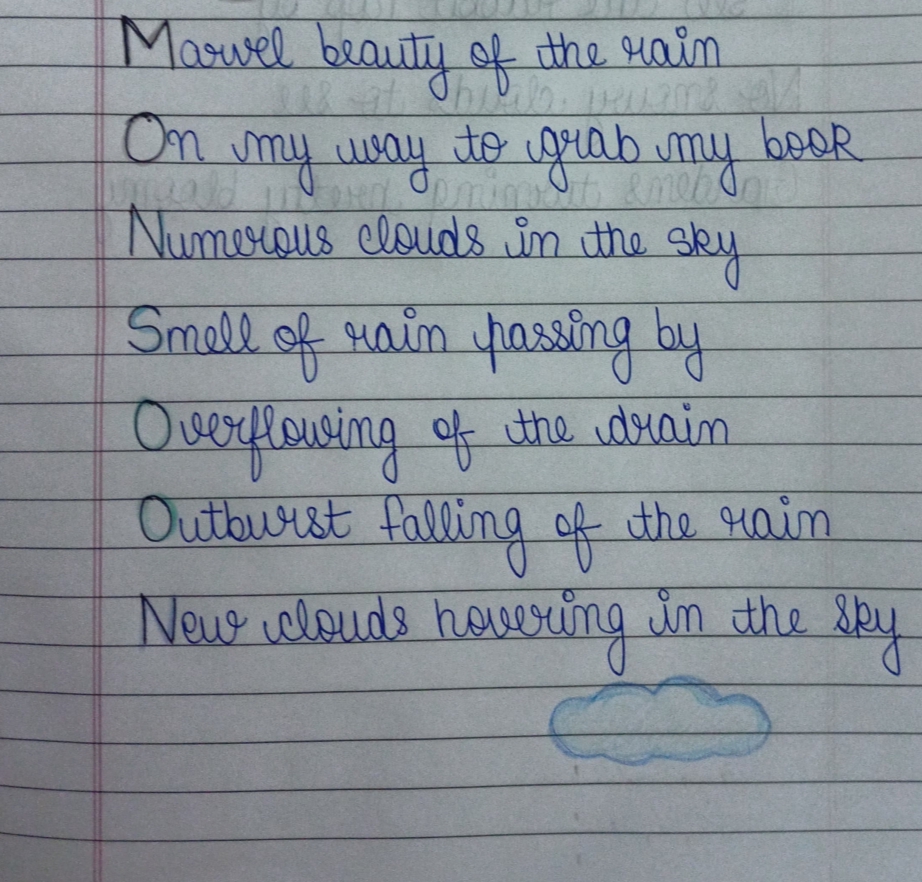 Marvel beauty of the rain
On my way to grab my book
Numerous clouds in the sky
Smell of rain passing by
Overflowing of the drain
Outburst falling of the rain
New clouds hovering in the sky